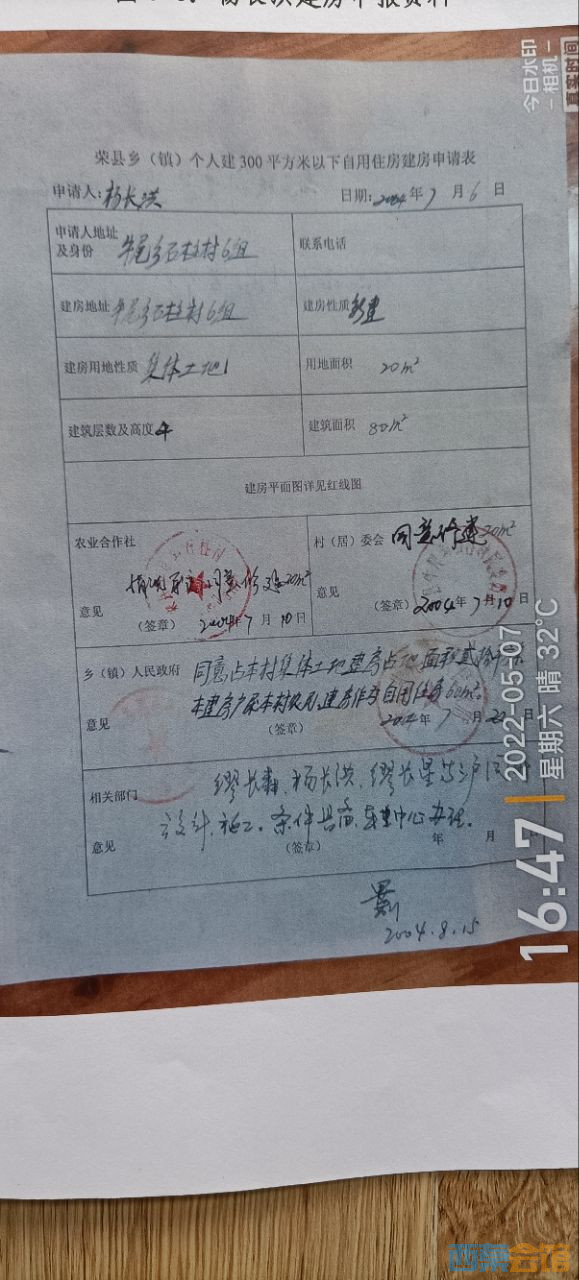 荣县乡（镇）个人建300平方米以下自用住房建房申请表
申请人：杨长洪 日期：2004年7月6日
申请人地址及身份 牛尾乡石柱村6组 联系电话
建房地址 牛尾乡石柱村6组 建房性质 新建
建房用地性质 集体土地 用地面积 20m²
建筑层数及高度 4 建筑面积 80m²
建房平面图详见红线图
农业合作社 村（居）委会 同意修建20m²
情况属实同意修建20m²
意见 意见
（签章）2004年7月10日 （签章）2004年7月10日
乡（镇）人民政府 同意占本村集体土地建房占地面积贰拾
本建房户系本村农户，建房作为自用住房
意见 （签章） 2004年7月22日
相关部门 缪长森、杨长洪、缪长星
设计、施工。条件具备，中心办理。
意见 （签章） 年 月
2004.8.15
今日水印
-相机-
真实时间
16:47
2022-05-07
星期六 晴 32℃
西菜会馆